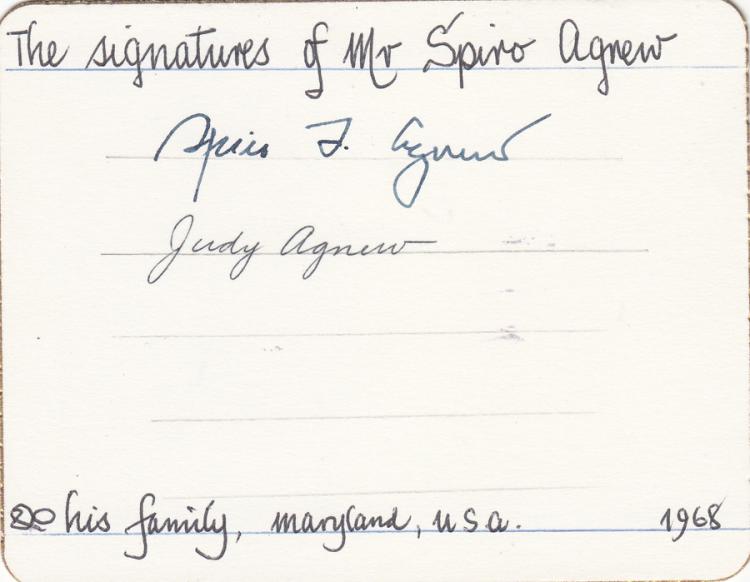 The signatures of Mr Spiro Agnew
Spiro T. Agnew
Judy Agnew
& his family, maryland, usa. 1968